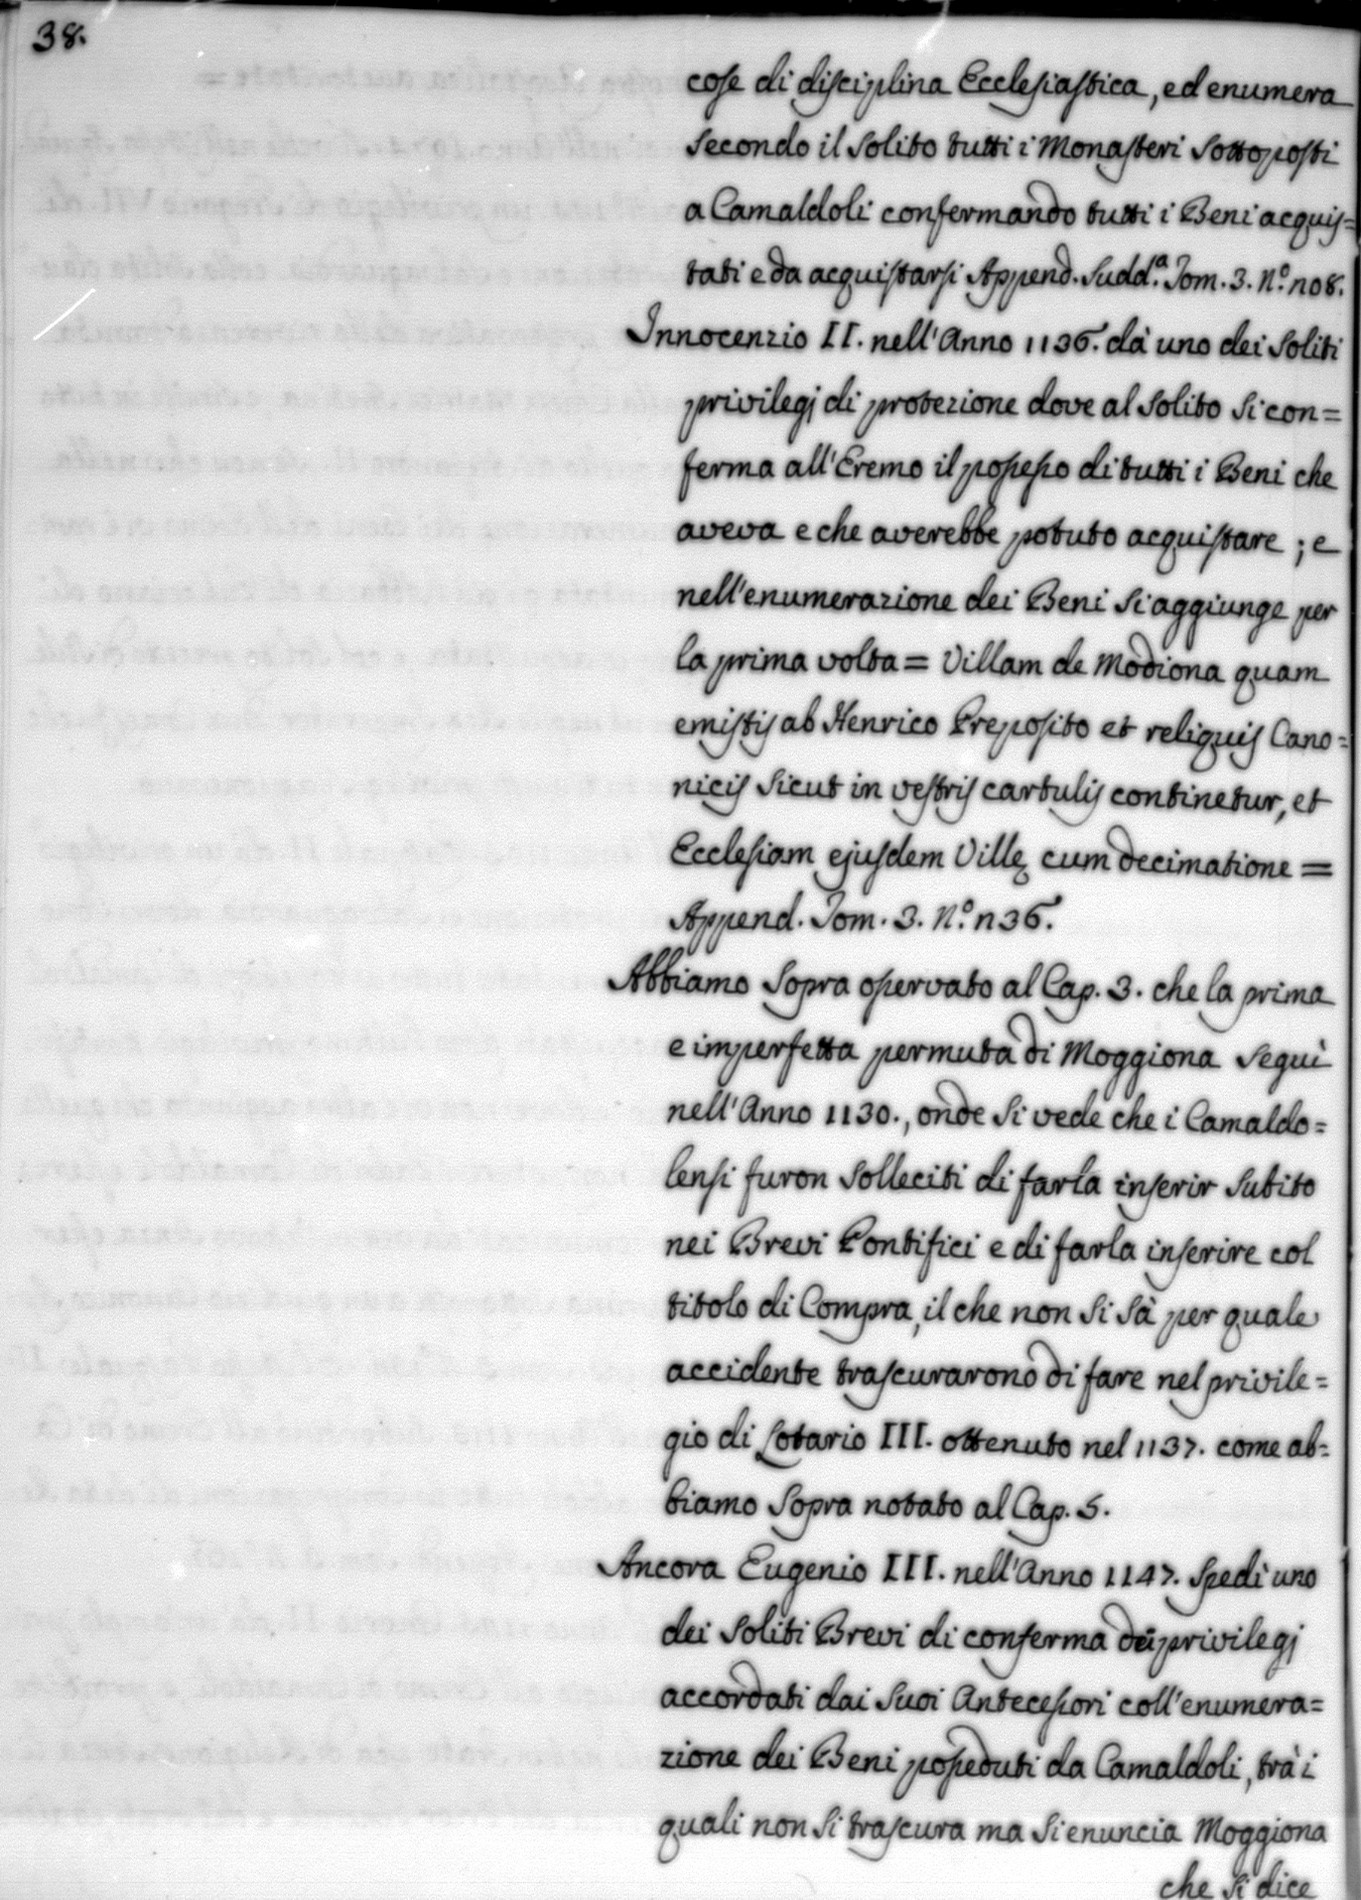 38.
cose di disciplina Ecclesiastica, ed enumera
secondo il solito tutti i Monasteri sottoposti
a Camaldoli confermando tutti i Beni acquis=
tati e da acquistarsi Append. Sudd.ª Tom. 3. N.º n08.
Innocenzio II. nell'Anno 1136. dà uno dei soliti
privilegj di protezione dove al solito si con=
ferma all'Eremo il possesso di tutti i Beni che
aveva e che averebbe potuto acquistare; e
nell'enumerazione dei Beni si aggiunge per
la prima volta = Villam de Modiona quam
emistis ab Henrico Preposito et reliquis Cano=
nicis sicut in vestris cartulis continetur, et
Ecclesiam ejusdem Villę cum decimatione =
Append. Tom. 3. N.º n36.
Abbiamo sopra osservato al Cap. 3. che la prima
e imperfetta permuta di Moggiona seguì
nell'Anno 1130., onde si vede che i Camaldo=
lensi furon solleciti di farla inserir subito
nei Brevi Pontifici e di farla inserire col
titolo di Compra, il che non si sà per quale
accidente trascurarono di fare nel privile=
gio di Lotario III. ottenuto nel 1137. come ab=
biamo sopra notato al Cap. 5.
Ancora Eugenio III. nell'Anno 1147. spedì uno
dei soliti Brevi di conferma dei privilegj
accordati dai suoi Antecessori coll'enumera=
zione dei Beni posseduti da Camaldoli, trà i
quali non si trascura ma si enuncia Moggiona
che si dice